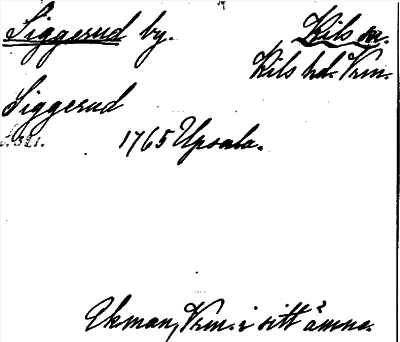 Siggerud by. Kils sn.
Kils hd. Vrm.
Siggerud
1765 Upsala.
Ekman, Vrm. i sitt ämne.